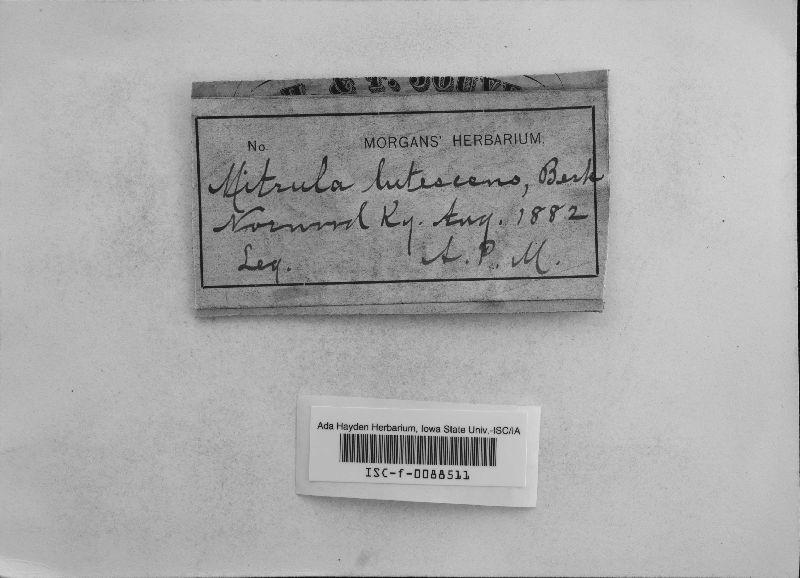 No. MORGANS' HERBARIUM.
Mitrula lutescens, Berk
Norwood Ky. Aug. 1882
Leg. A. P. M.
Ada Hayden Herbarium, Iowa State Univ.-ISC/IA
ISC-f-0088511